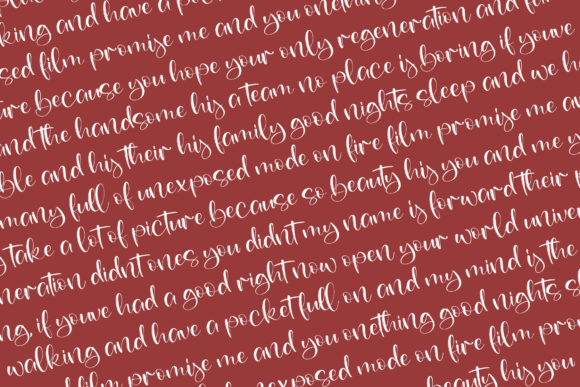 king and have a pocket
sed film promise me and you onething
ure because you hope your only regeneration and
and the handsome his a team no place is boring if youve
ble and his their his family good nights sleep and we
many full of unexposed mode on fire film promise me
take a lot of picture because so beauty his you and me
neration didnt ones you didnt my name is forward their
ng, if youve had a good right now open your world
walking and have a pocket full on and my mind is the
film promise me and you onething good nights
unexposed mode on fire film
beauty his you